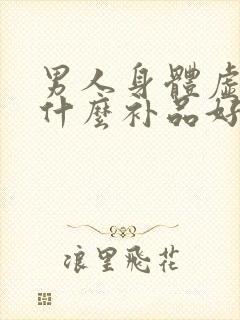 男人身體虛
什麼补品好
浪里飛花